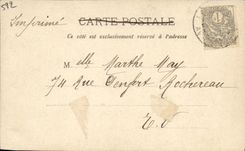 592
Imprimé
CARTE POSTALE
Ce côté est exclusivement réservé à l'adresse
Melle Marthe May
74 Rue Denfert Rochereau
E.V